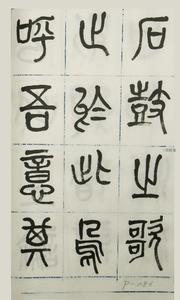 石鼓之歌
止於此烏
呼吾意其